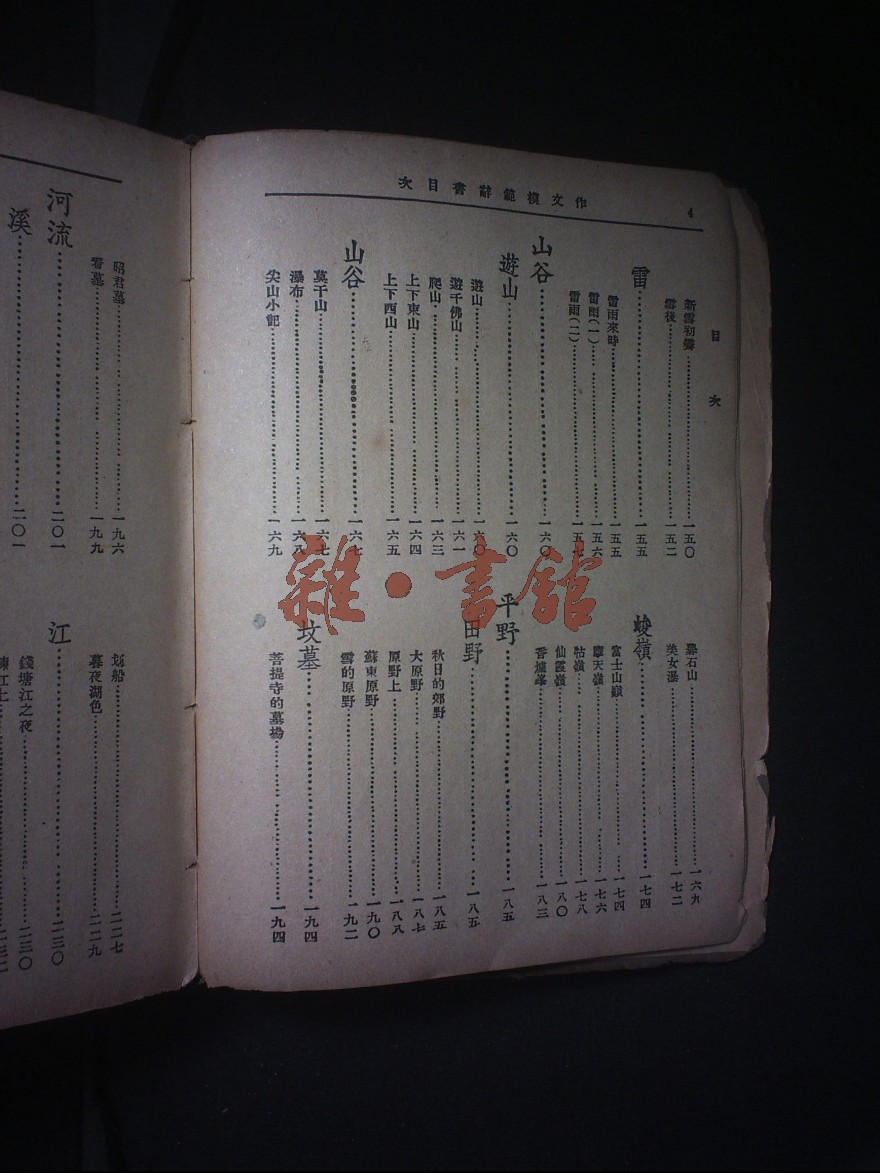 作文模範辭書目次
4
目次
新雪初霽……一五〇
雪後……一五二
雷……一五五
雷雨來時……一五五
雷雨(一)……一五六
雷雨(二)……一五七
山谷……一六〇
遊山……一六〇
遊山……一六〇
遊千佛山……一六一
爬山……一六三
上下東山……一六四
上下西山……一六五
山谷……一六七
莫干山……一六七
瀑布……一六八
尖山小記……一六九
石山……一六九
美女瀑……一七二
峻嶺……一七四
富士山嶽……一七四
摩天嶺……一七六
牯嶺……一七八
仙霞嶺……一八〇
香爐峯……一八三
平野……一八五
田野……一八五
秋日的郊野……一八五
大原野……一八七
原野上……一八八
蘇東原野……一九〇
雪的原野……一九二
坟墓……一九四
菩提寺的墓場……一九四
昭君墓……一九六
看墓……一九九
河流……二〇一
溪……二〇一
划船……二二七
暮夜湖色……二二九
江……二三〇
錢塘江之夜……二三〇
江上……二三二
雜·書館